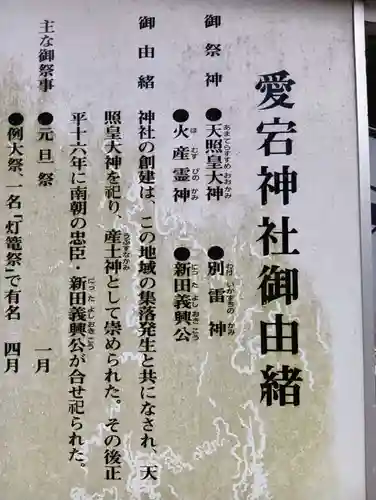 愛宕神社御由緒
御祭神 ●天照皇大神 ●別雷神
あまてらすすめおおかみ わけいかずちのかみ
●火産霊神 ●新田義興公
ほむすびのかみ にったよしおきこう
御由緒 神社の創建は、この地域の集落発生と共になされ、天
照皇大神を祀り、産土神として崇められた。その後正
うぶすなかみ
平十六年に南朝の忠臣・新田義興公が合せ祀られた。
にったよしおきこう
主な御祭事 ●元旦祭 一月
●例大祭、一名「灯籠祭」で有名 四月